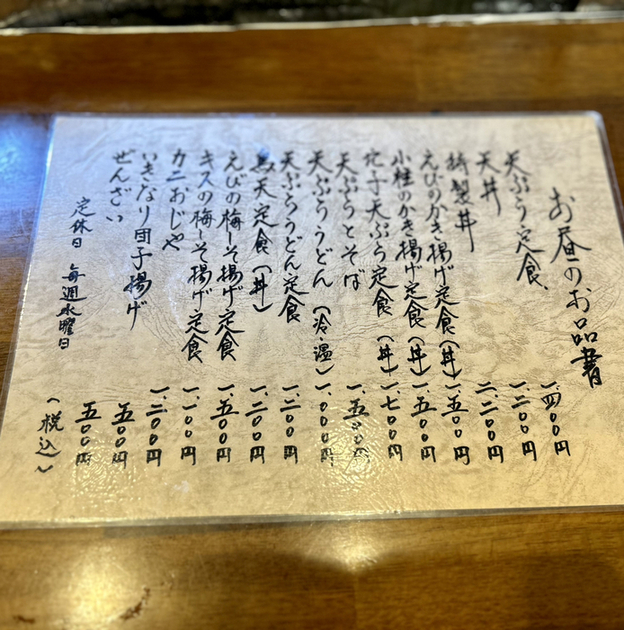 お昼のお品書
天ぷら定食 一、四〇〇円
天丼 一、二〇〇円
特製丼 二、二〇〇円
えびのかき揚げ定食(丼) 一、五〇〇円
小柱のかき揚げ定食(丼) 一、五〇〇円
穴子天ぷら定食(丼) 一、七〇〇円
天ぷらとそば 一、五〇〇円
天ぷらうどん(冷・温) 一、〇〇〇円
天ぷらうどん定食 一、二〇〇円
鳥天定食(丼) 一、二〇〇円
えびの梅しそ揚げ定食 一、五〇〇円
キスの梅しそ揚げ定食 一、一〇〇円
カニおじや 一、二〇〇円
いきなり団子揚げ 五〇〇円
ぜんざい 五〇〇円
定休日 毎週水曜日
(税込)